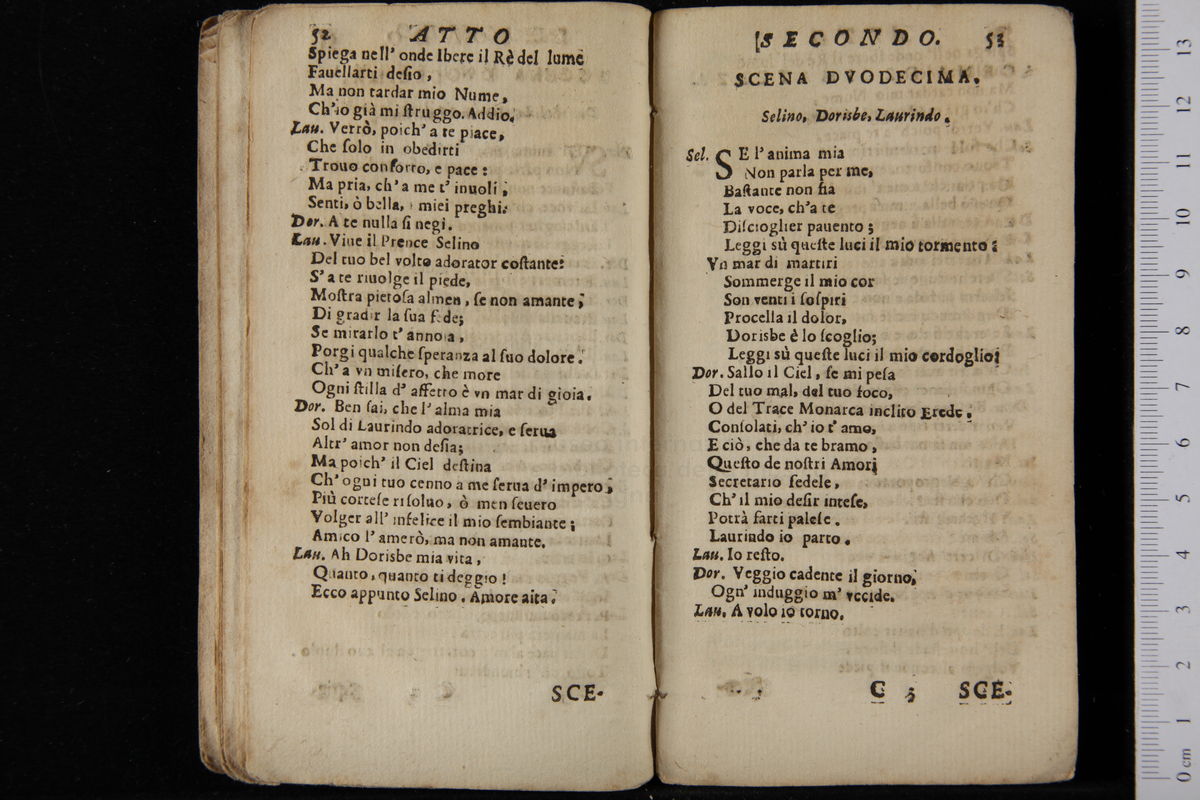 52 ATTO
Spiega nell' onde Ibere il Rè del lume
Fauellarti desio,
Ma non tardar mio Nume,
Ch'io già mi struggo. Addio.
Lau. Verrò, poich' a te piace,
Che solo in obedirti
Trouo conforto, e pace:
Ma pria, ch' a me t' inuoli,
Senti, ò bella, i miei preghi.
Dor. A te nulla si negi.
Lau. Viue il Prence Selino
Del tuo bel volto adorator costante:
S' a te riuolge il piede,
Mostra pietosa almen, se non amante;
Di gradir la sua fede;
Se mirarlo t' annoia,
Porgi qualche speranza al suo dolore.
Ch' a vn misero, che more
Ogni stilla d' affetto è vn mar di gioia.
Dor. Ben sai, che l' alma mia
Sol di Laurindo adoratrice, e serua
Altr' amor non desia;
Ma poich' il Ciel destina
Ch' ogni tuo cenno a me serua d' impero,
Più cortese risoluo, ò men seuero
Volger all' infelice il mio sembiante;
Amico l' amerò, ma non amante.
Lau. Ah Dorisbe mia vita,
Quanto, quanto ti deggio!
Ecco appunto Selino. Amore aita.
SCE-
SECONDO. 53
SCENA DVODECIMA.
Selino, Dorisbe, Laurindo.
Sel. SE l' anima mia
Non parla per me,
Bastante non fia
La voce, ch'a te
Discioglier pauento;
Leggi sù queste luci il mio tormento:
Vn mar di martiri
Sommerge il mio cor
Son venti i sospiri
Procella il dolor,
Dorisbe è lo scoglio;
Leggi sù queste luci il mio cordoglio:
Dor. Sallo il Ciel, se mi pesa
Del tuo mal, del tuo foco,
O del Trace Monarca inclito Erede.
Consolati, ch' io t' amo,
E ciò, che da te bramo,
Questo de nostri Amori
Secretario fedele,
Ch' il mio desir intese,
Potrà farti palese.
Laurindo io parto.
Lau. Io resto.
Dor. Veggio cadente il giorno,
Ogn' induggio m' vccide.
Lau. A volo io torno.
C 3 SCE-
0 cm 1 2 3 4 5 6 7 8 9 10 11 12 13